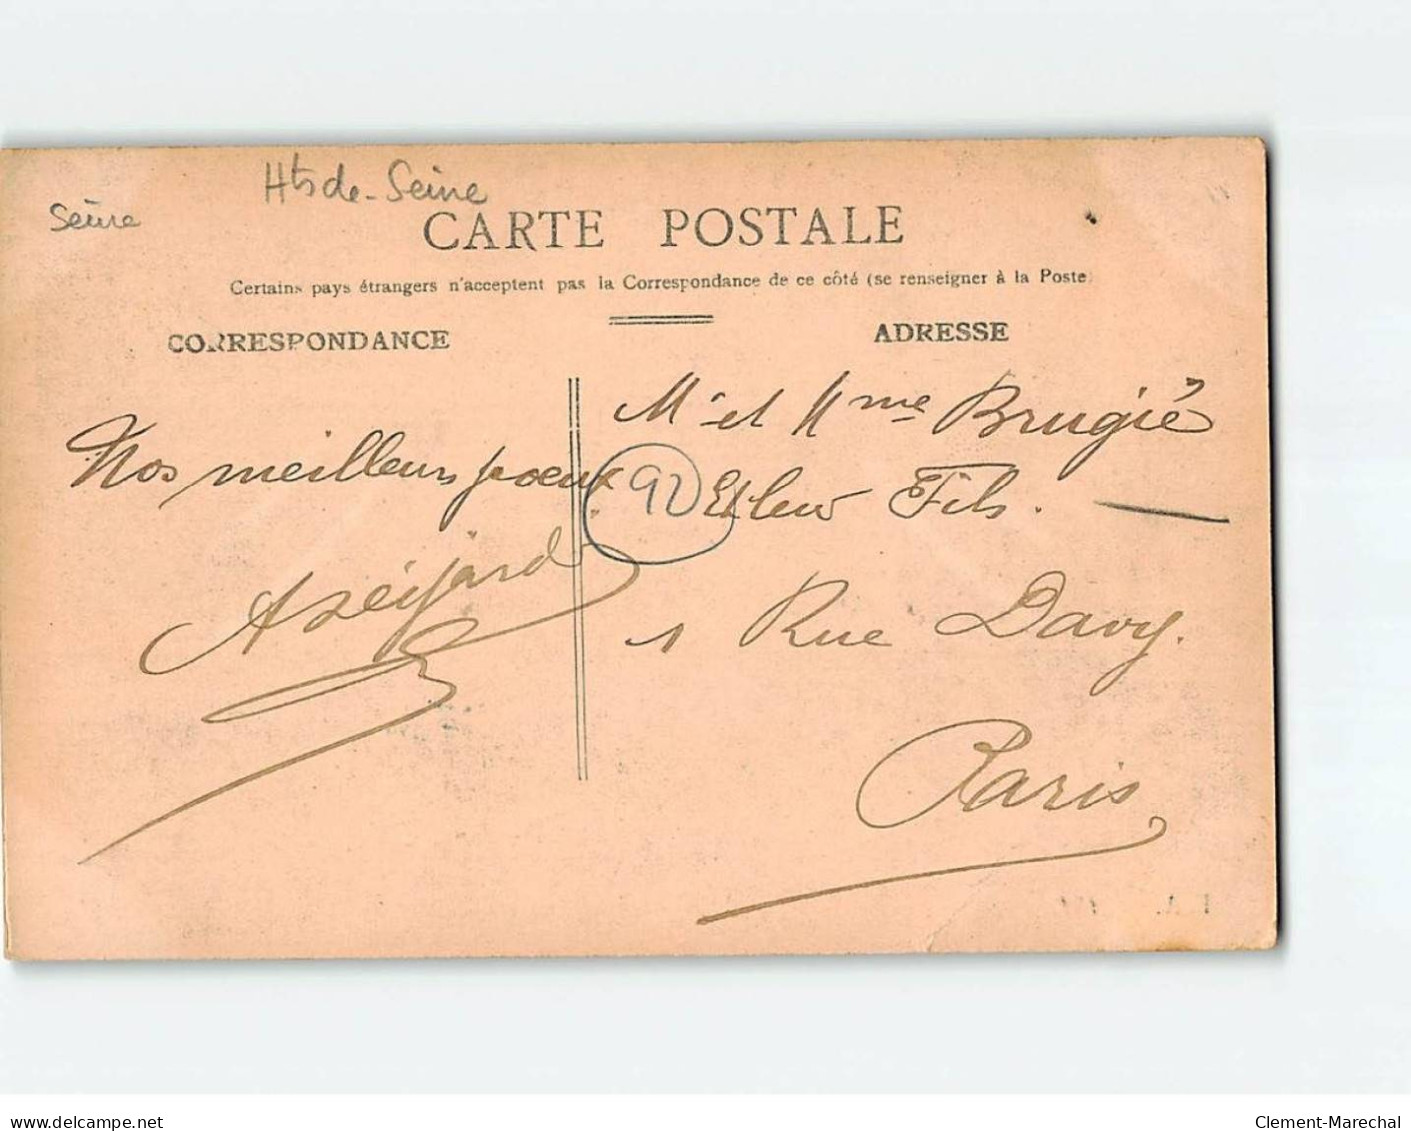 Hts de-Seine
Seine
CARTE POSTALE
Certains pays étrangers n'acceptent pas la Correspondance de ce côté (se renseigner à la Poste)
CORRESPONDANCE
ADRESSE
Nos meilleurs
Mr et Mme Brugié
92
Et leur Fils.
1 Rue Davy.
Paris
delcampe.net
Clement-Marechal